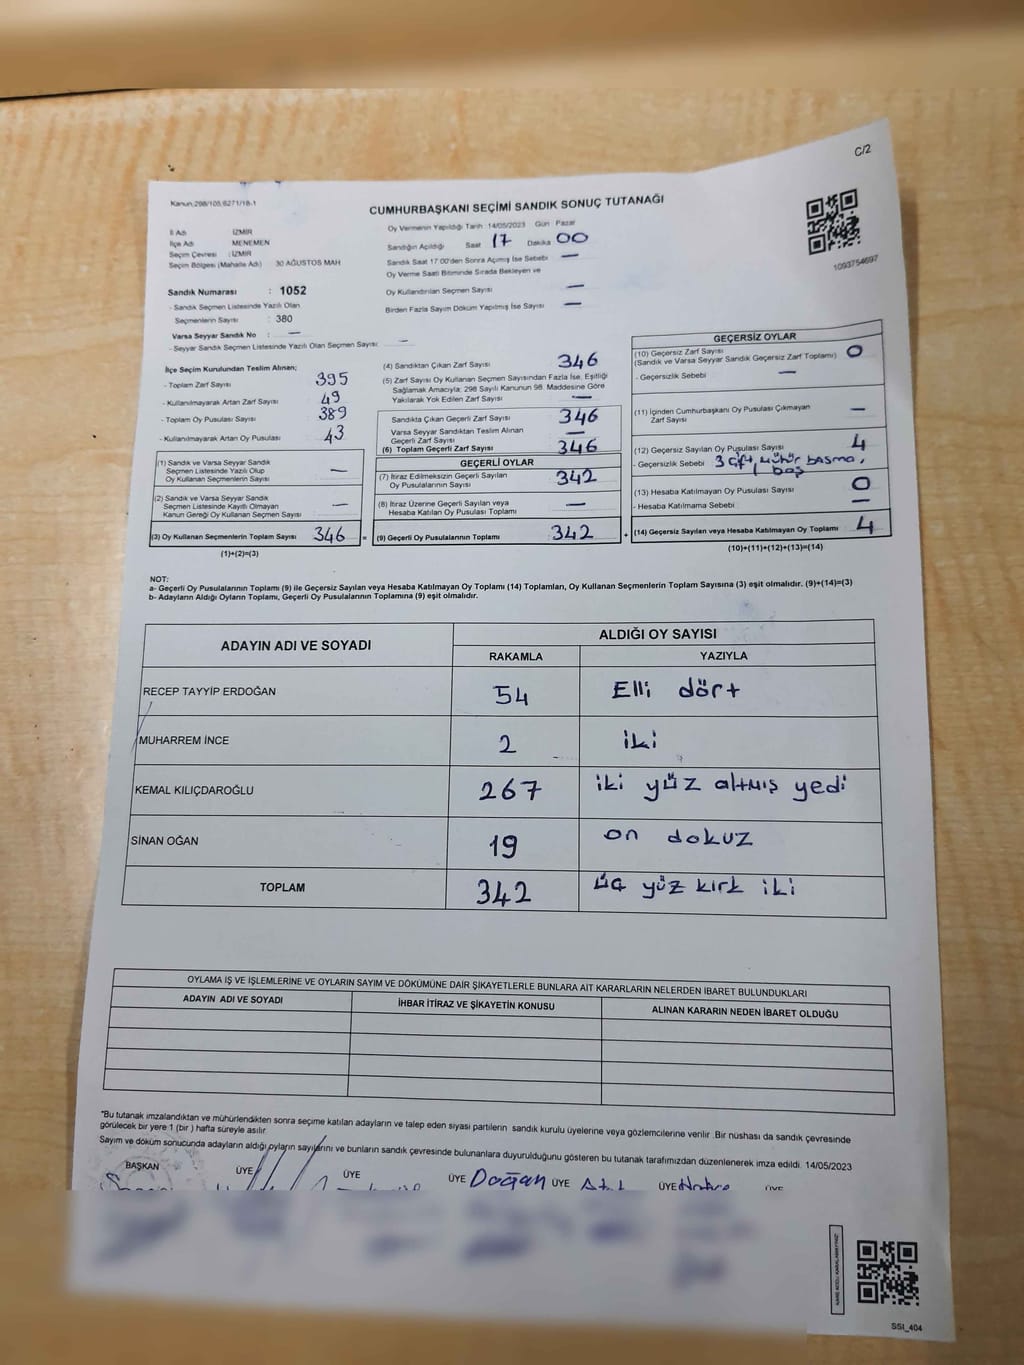 C/2
Kanun:298/105,6271/18-1
CUMHURBAŞKANI SEÇİMİ SANDIK SONUÇ TUTANAĞI
1093754697
İl Adı İZMİR
İlçe Adı MENEMEN
Seçim Çevresi : İZMİR
Seçim Bölgesi (Mahalle Adı) 30 AĞUSTOS MAH
Oy Vermenin Yapıldığı Tarih :14/05/2023 Gün : Pazar
Sandığın Açıldığı Saat 17 Dakika 00
Sandık Saat 17.00'den Sonra Açılmış İse Sebebi —
Oy Verme Saati Bitiminde Sırada Bekleyen ve
Oy Kullandırılan Seçmen Sayısı —
Birden Fazla Sayım Döküm Yapılmış İse Sayısı —
Sandık Numarası : 1052
- Sandık Seçmen Listesinde Yazılı Olan
Seçmenlerin Sayısı : 380
Varsa Seyyar Sandık No : —
- Seyyar Sandık Seçmen Listesinde Yazılı Olan Seçmen Sayısı: —
İlçe Seçim Kurulundan Teslim Alınan;
- Toplam Zarf Sayısı 395
- Kullanılmayarak Artan Zarf Sayısı 49
- Toplam Oy Pusulası Sayısı 389
- Kullanılmayarak Artan Oy Pusulası 43
(1) Sandık ve Varsa Seyyar Sandık
Seçmen Listesinde Yazılı Olup
Oy Kullanan Seçmen Sayısı —
(2) Sandık ve Varsa Seyyar Sandık
Seçmen Listesinde Kayıtlı Olmayan
Kanun Gereği Oy Kullanan Seçmen Sayısı —
(3) Oy Kullanan Seçmenlerin Toplam Sayısı 346 =
(1)+(2)=(3)
(4) Sandıktan Çıkan Zarf Sayısı 346
(5) Zarf Sayısı Oy Kullanan Seçmen Sayısından Fazla İse, Eşitliği
Sağlamak Amacıyla; 298 Sayılı Kanunun 98. Maddesine Göre
Yakılarak Yok Edilen Zarf Sayısı —
Sandıkta Çıkan Geçerli Zarf Sayısı 346
Varsa Seyyar Sandıktan Teslim Alınan
Geçerli Zarf Sayısı —
(6) Toplam Geçerli Zarf Sayısı 346
GEÇERLİ OYLAR
(7) İtiraz Edilmeksizin Geçerli Sayılan
Oy Pusulalarının Sayısı 342
(8) İtiraz Üzerine Geçerli Sayılan veya
Hesaba Katılan Oy Pusulası Toplamı —
(9) Geçerli Oy Pusulalarının Toplamı 342 +
GEÇERSİZ OYLAR
(10) Geçersiz Zarf Sayısı
(Sandık ve Varsa Seyyar Sandık Geçersiz Zarf Toplamı) 0
- Geçersizlik Sebebi —
(11) İçinden Cumhurbaşkanı Oy Pusulası Çıkmayan
Zarf Sayısı —
(12) Geçersiz Sayılan Oy Pusulası Sayısı 4
- Geçersizlik Sebebi 3 çift mühür basma,
1 boş
(13) Hesaba Katılmayan Oy Pusulası Sayısı 0
- Hesaba Katılmama Sebebi —
(14) Geçersiz Sayılan veya Hesaba Katılmayan Oy Toplamı 4
(10)+(11)+(12)+(13)=(14)
NOT:
a- Geçerli Oy Pusulalarının Toplamı (9) ile Geçersiz Sayılan veya Hesaba Katılmayan Oy Toplamı (14) Toplamları, Oy Kullanan Seçmenlerin Toplam Sayısına (3) eşit olmalıdır. (9)+(14)=(3)
b- Adayların Aldığı Oyların Toplamı, Geçerli Oy Pusulalarının Toplamına (9) eşit olmalıdır.
ADAYIN ADI VE SOYADI
ALDIĞI OY SAYISI
RAKAMLA YAZIYLA
RECEP TAYYİP ERDOĞAN 54 Elli dört
MUHARREM İNCE 2 iki
KEMAL KILIÇDAROĞLU 267 iki yüz altmış yedi
SİNAN OĞAN 19 on dokuz
TOPLAM 342 üç yüz kırk iki
OYLAMA İŞ VE İŞLEMLERİNE VE OYLARIN SAYIM VE DÖKÜMÜNE DAİR ŞİKAYETLERLE BUNLARA AİT KARARLARIN NELERDEN İBARET BULUNDUKLARI
ADAYIN ADI VE SOYADI İHBAR İTİRAZ VE ŞİKAYETİN KONUSU ALINAN KARARIN NEDEN İBARET OLDUĞU
*Bu tutanak imzalandıktan ve mühürlendikten sonra seçime katılan adayların ve talep eden siyasi partilerin sandık kurulu üyelerine veya gözlemcilerine verilir .Bir nüshası da sandık çevresinde
görülecek bir yere 1 (bir ) hafta süreyle asılır.
Sayım ve döküm sonucunda adayların aldığı oyların sayılarını ve bunların sandık çevresinde bulunanlara duyurulduğunu gösteren bu tutanak tarafımızdan düzenlenerek imza edildi. 14/05/2023
BAŞKAN ÜYE ÜYE ÜYE Doğan ÜYE ÜYE ÜYE
SSI_404